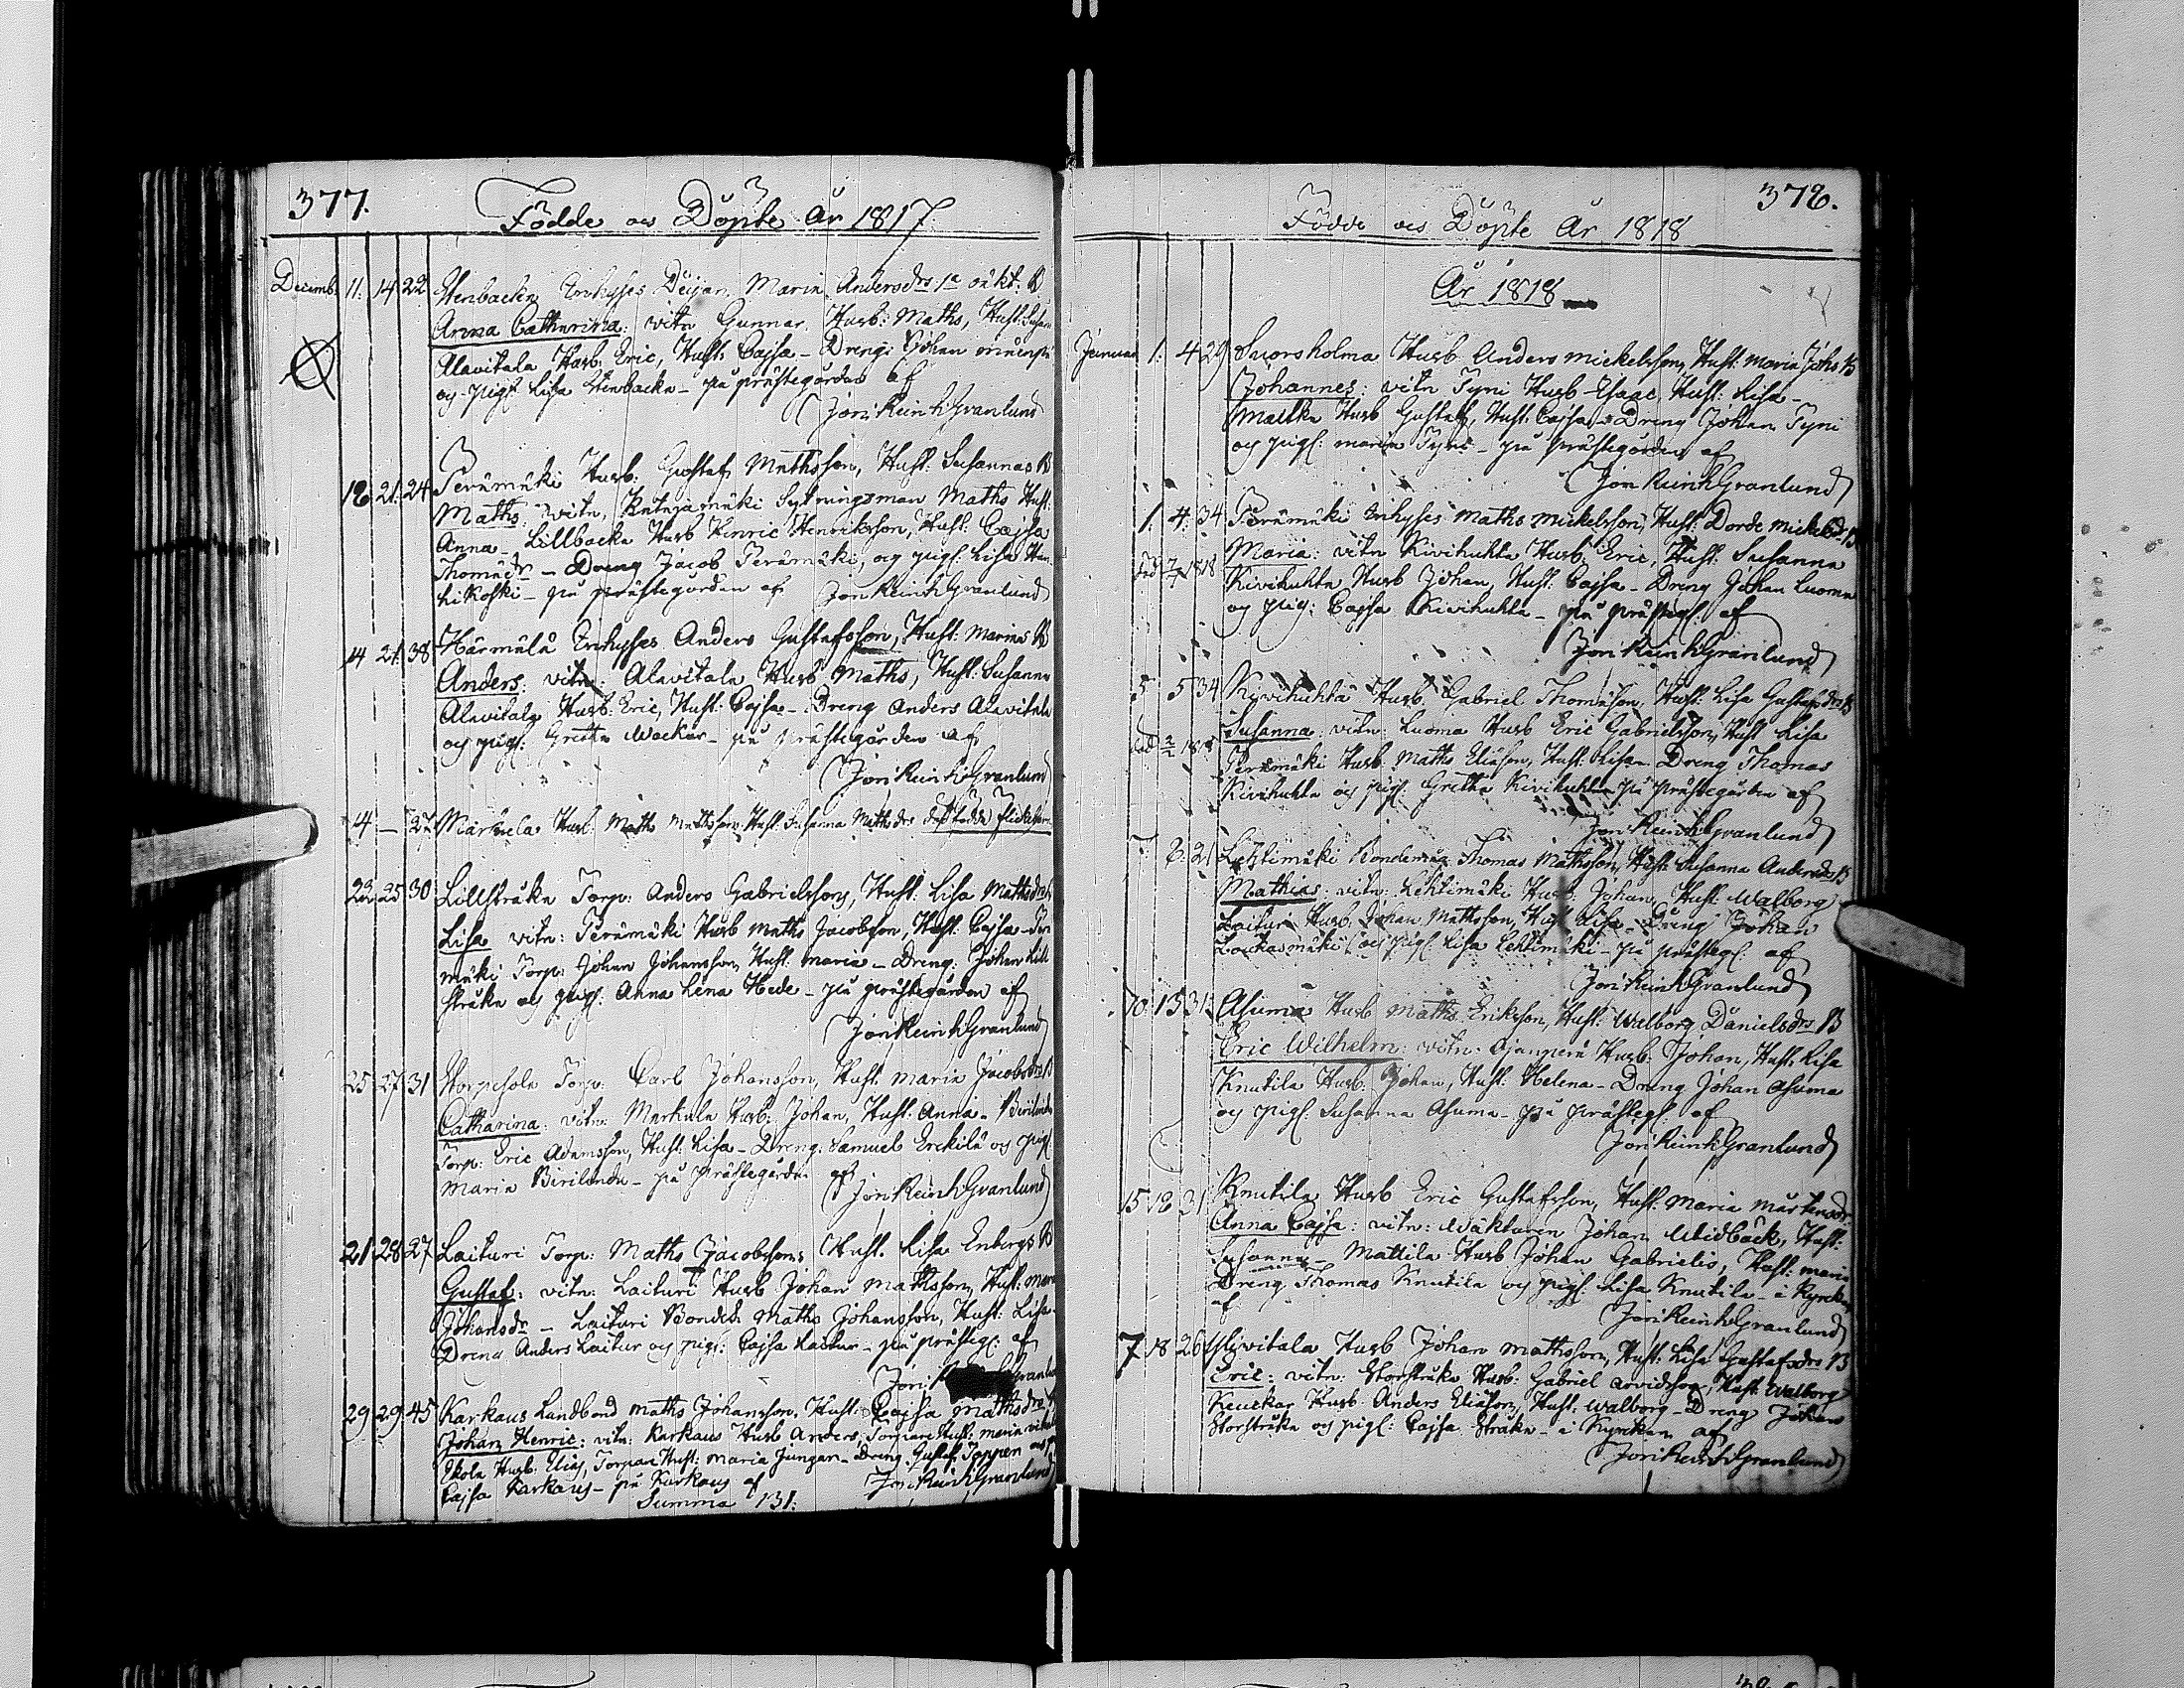 377.
Födde oc Döpte År 1817.
Decemb: 11: 14 22 Stenbacka Inhyses Deijan Maria Andersdrs 1a oäkt: B
Anna Catharina: vitn Gunnar Husb: Maths, Hust: Susan
Alavitala Husb: Eric, Hust: Cajsa - Dreng: Johan
og pigs: Lisa Stenbacka - på prästegården af
Jon: Reinh Granlund
18 21: 24 Perämäki Husb: Gustaf Mathsson, Hust: Susannas B
Maths: vitn, Katajamäki Sytningsman Maths Hust:
Anna - Lillbacka Husb Henric Henricsson, Hust: Cajsa
Thomædr - Dreng Jacob Perämäki, og pigs: Lisa Han
hikoski - på prästegården af Jon Reinh Granlund
14 21: 38 Härmälä Inhyses Anders Gustafsson, Hust: Marias B
Anders: vitn: Alavitala Husb Maths, Hust: Susanna
Alavitala Husb: Eric, Hust: Cajsa - Dreng Anders Alavitala
og pigs: Greta Wackar - på prästegården af
Jon: Reinh Granlund
4 — 27 Markula Husb: Maths Mathsson Hust: Susanna Mathsdrs dödfödda flickebarn
22 25 30 Lillstråka Torp: Anders Gabrielsson, Hust: Lisa Mathsdrs B
Lisa vitn: Perämäki Husb Maths Jacobsson, Hust: Cajsa - Perä
mäki Torp: Johan Johansson, Hust: Maria - Dreng: Johan Lill
stråka og pigs: Anna Lena Hede - på prästegården af
Jon Reinh Granlund
25 27 31 Storpesola Torp: Carl Johansson, Hust: Maria Jacobsdrs B
Catharina: vitn: Markula Husb: Johan, Hust: Anna - Birilunda
Torp: Eric Adamsson, Hust: Lisa - Dreng: Samuel Erckilä og pigs
Maria Birilunda - på prästegården af Jon Reinh Granlund
21 28 27 Laituri Torp: Maths Jacobsson, Hust. Lisa Enbergs B
Gustaf: vitn: Laituri Husb Johan Mathsson, Hust: Maria
Johansdr - Laituri Bondes: Maths Johansson, Hust: Lisa -
Dreng Anders Laituri og pigs: Cajsa Laituri - på prästeg: af
Jon: Granlund
29 29 45 Karhaus Landbond Maths Johansson, Hust: Cajsa Mathsdrs
Johan Henric: vitn: Karhaus Husb Anders, Torpare Hust: Maria
Skola Husb. Elias, Torpare Hust: Maria Jungar - Dreng Gustaf Toppen
Cajsa Karhaus - på Karhaus af Jon Reinh Granlund
Summa 131:
378.
Födde oc Döpte År 1818
År 1818
Januar 1: 4 29 Snorsholma Husb Anders Mickelsson, Hust: Maria Johs B
Johannes: vitn Tyni Husb Isaac, Hust: Lisa -
Mattka Husb Gustaf, Hust. Cajsa - Dreng Johan Tyni
og pigs: Maria Tyni - på prästegården af
Jon Reinh Granlund
1: 4: 34 Perämäki Inhyses Maths Mickelsson, Hust: Dorde Mickelsdr B
Maria: vitn Kivihuhta Husb: Eric, Hust: Susanna
död 7/7 1818 Kivihuhta Husb Johan, Hust: Cajsa - Dreng Johan Luoma
og pig: Cajsa Kivihuhta - på prästeg: af
Jon Reinh Granlund
5 5 34 Kivihuhta Husb: Gabriel Thomasson, Hust: Lisa Gustafsdrs B
Susanna: vitn: Luoma Husb Eric Gabrielsson, Hust Lisa
död 2/2 1818 Perämäki Husb: Maths Eliasson, Hust: Lisa - Dreng Thomas
Kivihuhta og pigs: Gretha Kivihuhta på prästegården af
Jon Reinh Granlund
7: 8: 21 Lehtimäki Bondeson Thomas Mathsson, Hust: Susanna Andersdrs B
Mathias: vitn: Lehtimäki Husb: Johan, Hust: Walborg
Laituri Husb. Johan Mathsson, Hust Lisa - Dreng Johan
Laukasmäki og pigs: Lisa Lehtimäki - på prästeg: af
Jon Reinh Granlund
10. 13 31: Asuma Husb Maths Eriksson, Hust: Walborg Danielsdrs B
Eric Wilhelm: vitn: Ajanperä Husb: Johan, Hust Lisa
Knutila Husb: Johan, Hust: Helena - Dreng Johan Asuma
og pigs: Susanna Asuma - på prästeg: af
Jon Reinh Granlund
15 18 31 Knutila Husb Eric Gustafsson, Hust: Maria Mårtensdr:
Anna Cajsa: vitn: Wäktaren Johan Widbäck, Hust:
Susanna - Mattila Husb Johan Gabrielis, Hust: Maria
Dreng Thomas Knutila og pigs: Lisa Knutila - i Kyrckan
af
Jon Reinh Granlund
7 18 26 Ylivitala Husb Johan Mathsson, Hust: Lisa Gustafsdrs B
Eric: vitn: Storstråka Husb: Gabriel Arvidsson, Hust. Walborg
Keuckar Husb Anders Eliasson, Hust: Walborg - Dreng Johan
Storstråka og pigs: Cajsa Stråka - i Kyrckan af
Jon Reinh Granlund